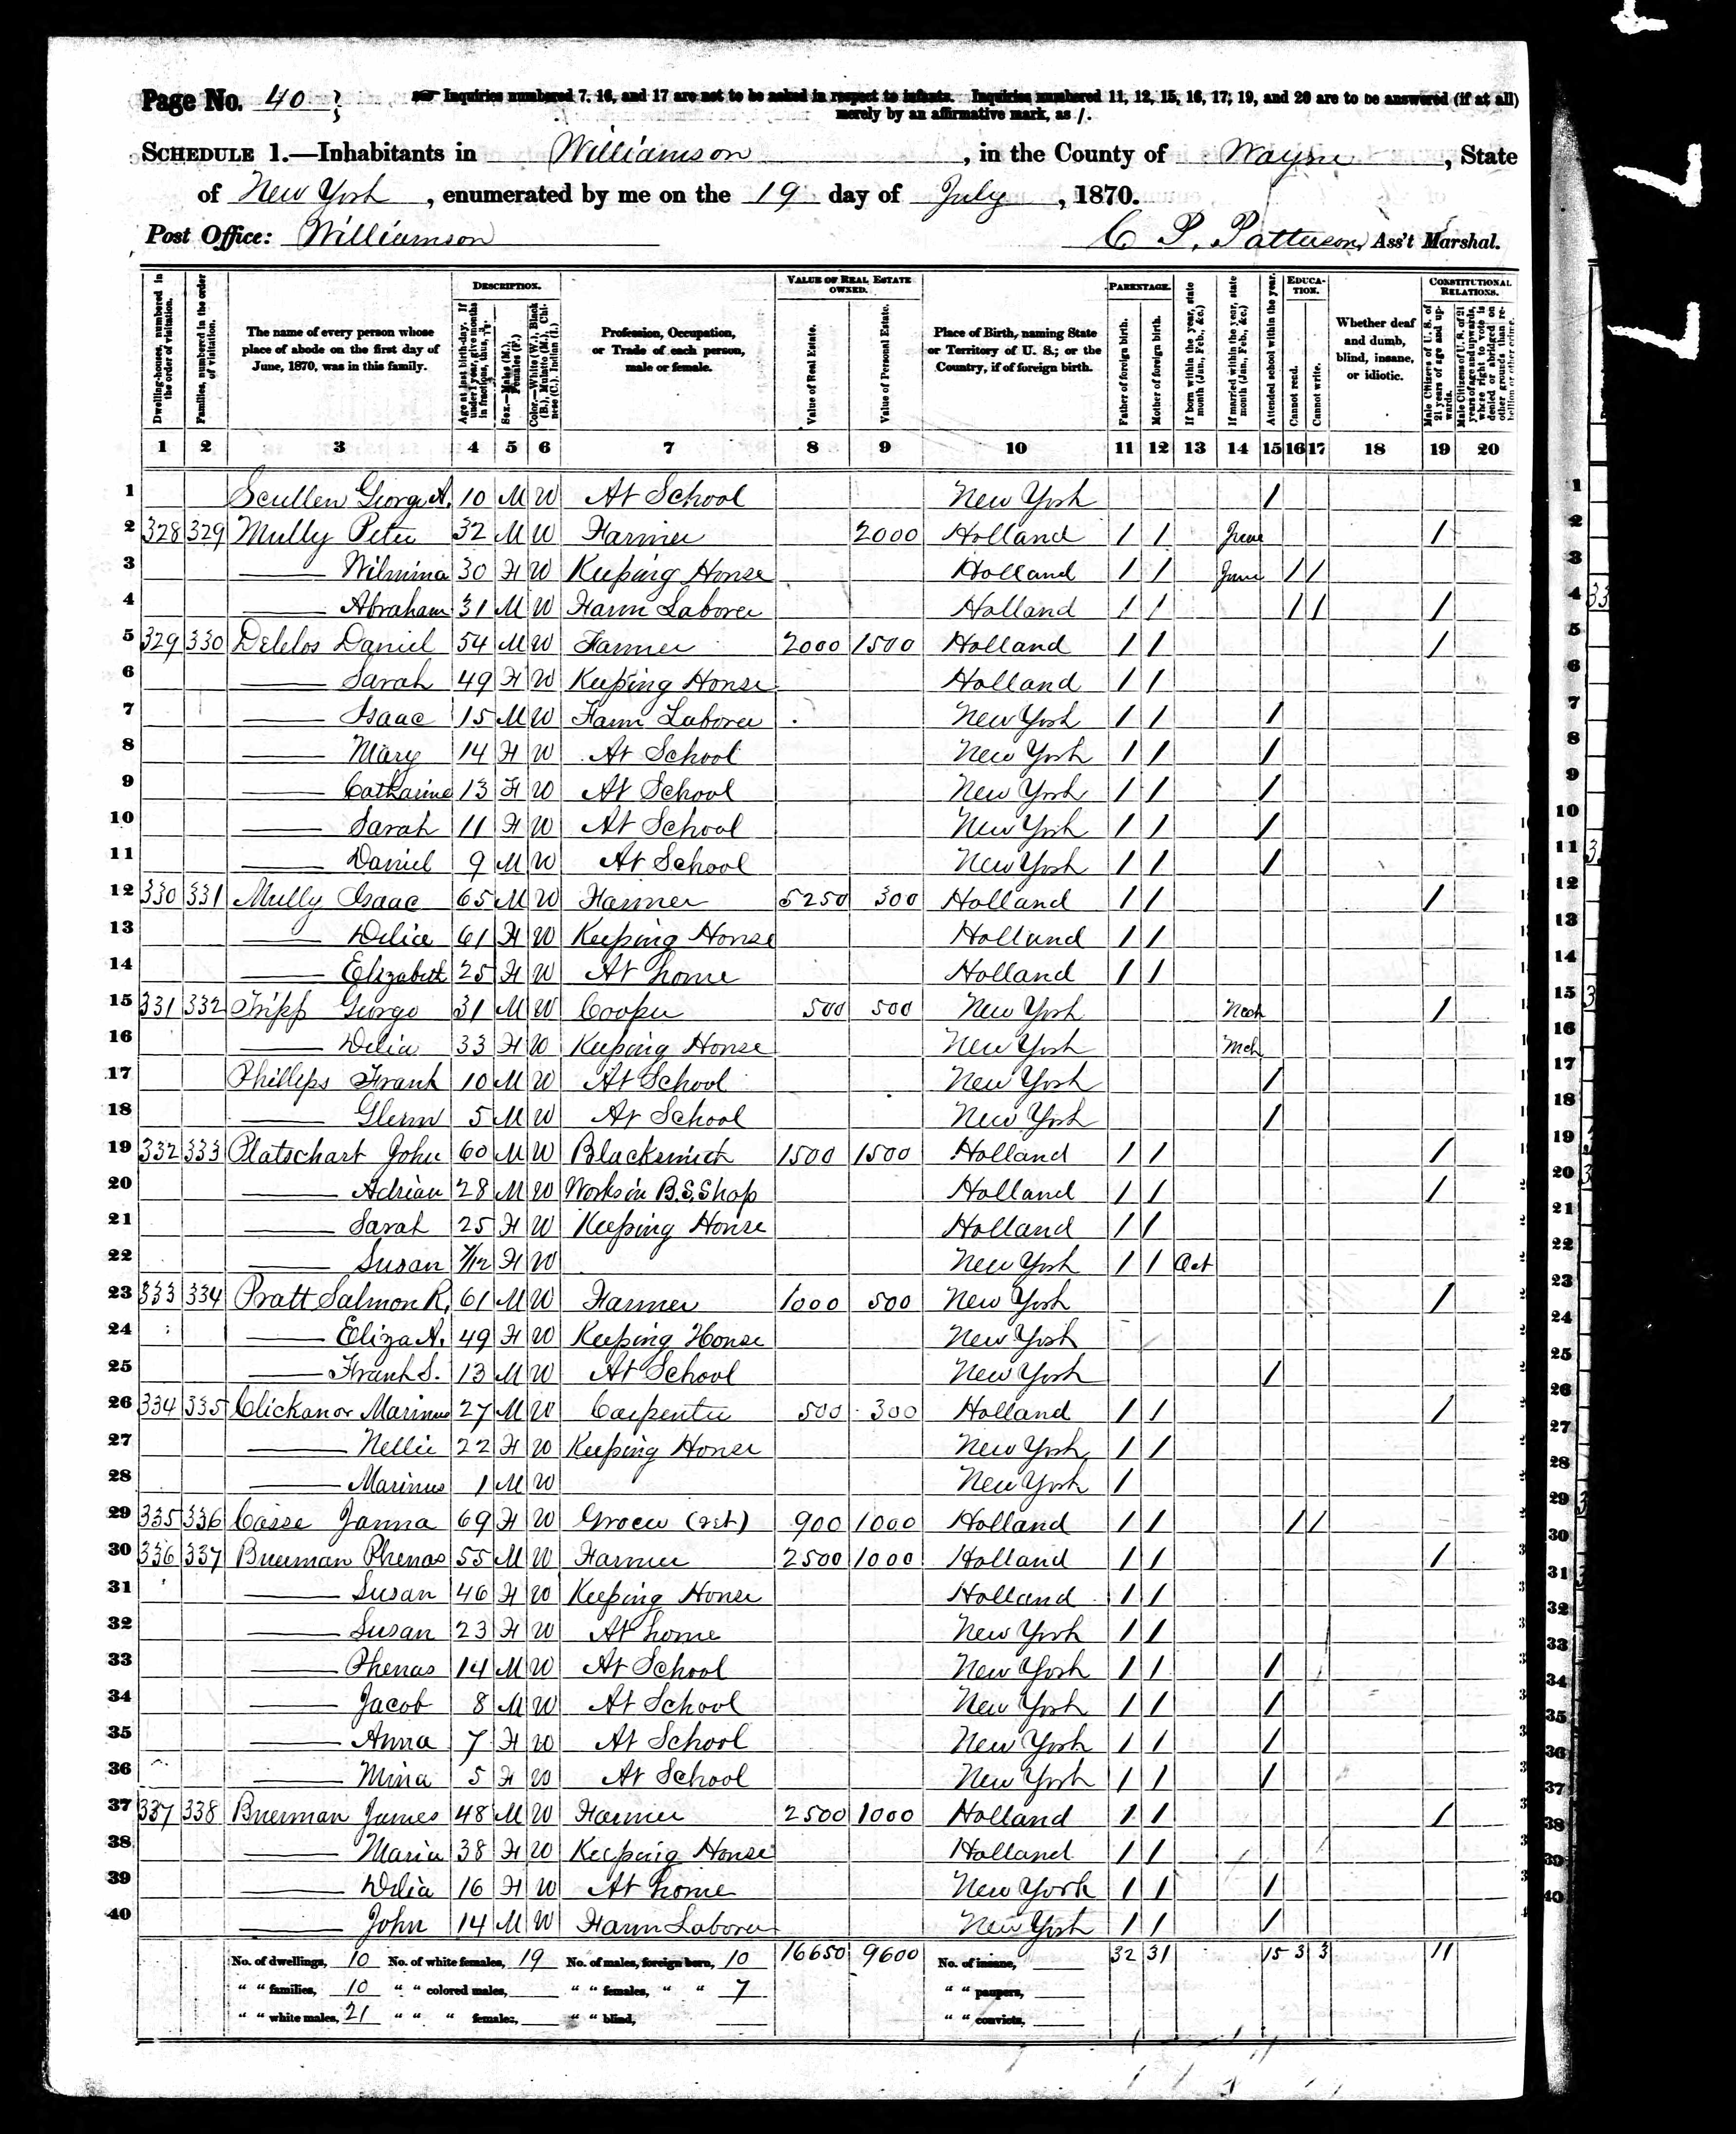 Page No. 40
Inquiries numbered 7, 16, and 17 are not to be asked in respect to infants. Inquiries numbered 11, 12, 15, 16, 17, 19, and 20 are to be answered (if at all)
merely by an affirmative mark, as /.
SCHEDULE 1.—Inhabitants in Williamson, in the County of Wayne, State
of New York, enumerated by me on the 19 day of July, 1870.
Post Office: Williamson C P. Patterson, Ass't Marshal.
Dwelling-houses, numbered in the order of visitation.
Families, numbered in the order of visitation.
The name of every person whose place of abode on the first day of June, 1870, was in this family.
DESCRIPTION.
Age at last birth-day. If under 1 year, give months in fractions, thus, 3/12.
Sex.—Males (M.), Females (F.)
Color.—White (W.), Black (B.), Mulatto (M.), Chinese (C.), Indian (I.)
Profession, Occupation, or Trade of each person, male or female.
VALUE OF REAL ESTATE OWNED.
Value of Real Estate.
Value of Personal Estate.
Place of Birth, naming State or Territory of U. S.; or the Country, if of foreign birth.
PARENTAGE.
Father of foreign birth.
Mother of foreign birth.
If born within the year, state month (Jan., Feb., &c.)
If married within the year, state month (Jan., Feb., &c.)
Attended school within the year.
EDUCATION.
Cannot read.
Cannot write.
Whether deaf and dumb, blind, insane, or idiotic.
CONSTITUTIONAL RELATIONS.
Male Citizens of U. S. of 21 years of age and upwards.
Male Citizens of U. S. of 21 years of age and upwards, where right to vote is denied or abridged on other grounds than rebellion or other crime.
1 2 3 4 5 6 7 8 9 10 11 12 13 14 15 16 17 18 19 20
1 Scullen George A. 10 M W At School New York / 1
2 328 329 Mully Peter 32 M W Farmer 2000 Holland / / June / 2
3 —— Wilmina 30 F W Keeping House Holland / / June / / 3
4 —— Abraham 31 M W Farm Laborer Holland / / / / / 4
5 329 330 Delelos Daniel 54 M W Farmer 2000 1500 Holland / / / 5
6 —— Sarah 49 F W Keeping House Holland / / 6
7 —— Isaac 15 M W Farm Laborer New York / / / 7
8 —— Mary 14 F W At School New York / / / 8
9 —— Catharine 13 F W At School New York / / / 9
10 —— Sarah 11 F W At School New York / / / 10
11 —— Daniel 9 M W At School New York / / / 11
12 330 331 Mully Isaac 65 M W Farmer 5250 300 Holland / / / 12
13 —— Delia 61 F W Keeping House Holland / / 13
14 —— Elizabeth 25 F W At home Holland / / 14
15 331 332 Tripp George 31 M W Cooper 500 500 New York Mch / 15
16 —— Delia 33 F W Keeping House New York Mch 16
17 Phillips Frank 10 M W At School New York / 17
18 —— Glenn 5 M W At School New York / 18
19 332 333 Platschart John 60 M W Blacksmith 1500 1500 Holland / / / 19
20 —— Adrian 28 M W Works in B.S. Shop Holland / / / 20
21 —— Sarah 25 F W Keeping House Holland / / 21
22 —— Susan 7/12 F W New York / / Oct 22
23 333 334 Pratt Salmon R. 61 M W Farmer 1000 500 New York / 23
24 —— Eliza A. 49 F W Keeping House New York 24
25 —— Frank S. 13 M W At School New York / 25
26 334 335 Clickanor Marinus 27 M W Carpenter 500 300 Holland / / / 26
27 —— Nellie 22 F W Keeping House New York / / 27
28 —— Marinus 1 M W New York / 28
29 335 336 Casse Janna 69 F W Grocer (ret) 900 1000 Holland / / / / 29
30 336 337 Buerman Phenas 55 M W Farmer 2500 1000 Holland / / / 30
31 —— Susan 46 F W Keeping House Holland / / 31
32 —— Susan 23 F W At home New York / / 32
33 —— Phenas 14 M W At School New York / / / 33
34 —— Jacob 8 M W At School New York / / / 34
35 —— Anna 7 F W At School New York / / / 35
36 —— Mina 5 F W At School New York / / / 36
37 337 338 Buerman James 48 M W Farmer 2500 1000 Holland / / / 37
38 —— Maria 38 F W Keeping House Holland / / 38
39 —— Delia 16 F W At home New York / / / 39
40 —— John 14 M W Farm Laborer New York / / / 40
No. of dwellings, 10 No. of white females, 19 No. of males, foreign born, 10 16650 9600 No. of insane, 32 31 15 3 3 11
" " families, 10 " " colored males, " " females, " " 7 " " paupers,
" " white males, 21 " " " females, " " blind, " " convicts,